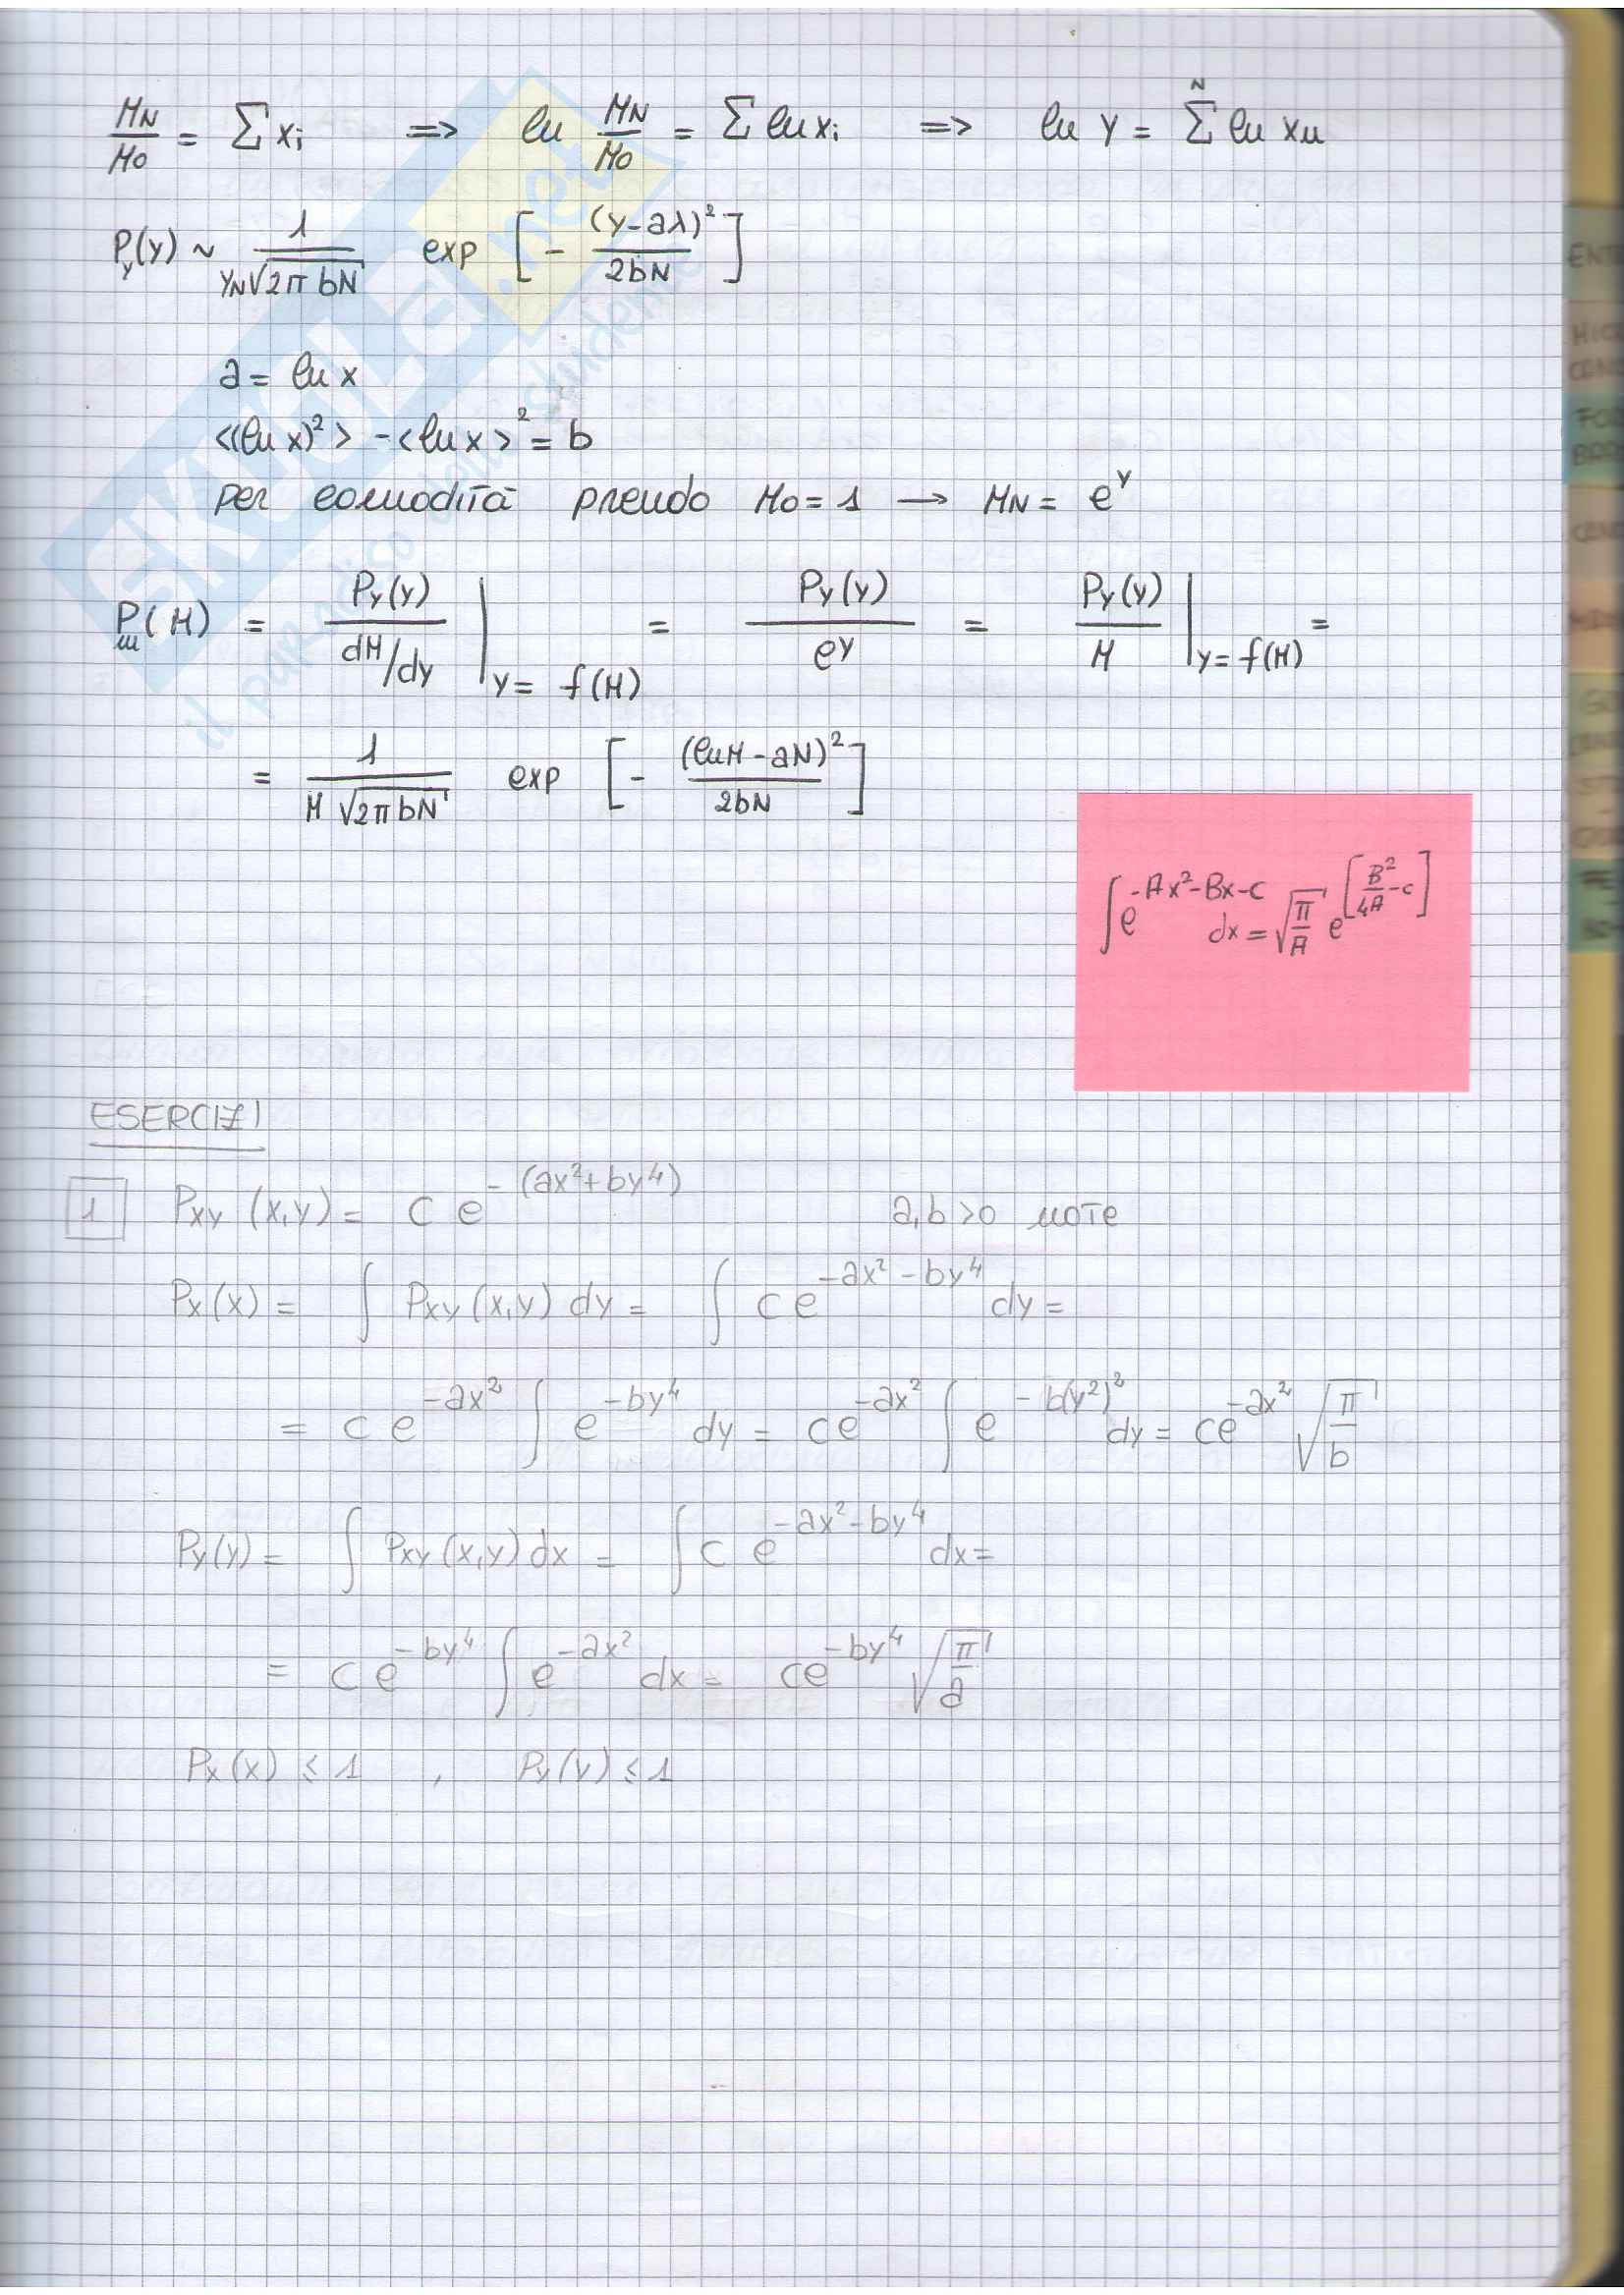 MN/M0 = Σ xi => ln MN/M0 = Σ ln xi => ln Y = Σ^N ln xn
Py(y) ~ 1/(YN√(2π bN)) exp [- (y-aλ)²/2bN]
a = ln x
<(ln x)²> - <ln x>² = b
per comodità prendo M0 = 1 → MN = e^y
Pm(M) = Py(y)/(dM/dy) |y = f(M) = Py(y)/e^y = Py(y)/M |y = f(M) =
= 1/(M √(2π bN)) exp [- (ln M - aN)²/2bN]
∫ e^(-Ax²-Bx-c) dx = √(π/A) e^[B²/4A - c]
ESERCIZI
1 Pxy (x,y) = c e^-(ax²+by⁴) a,b >0 note
Px(x) = ∫ Pxy (x,y) dy = ∫ c e^(-ax²-by⁴) dy =
= c e^(-ax²) ∫ e^(-by⁴) dy = c e^(-ax²) ∫ e^(-b(y²)²) dy = c e^(-ax²) √(π/b)
Py(y) = ∫ Pxy (x,y) dx = ∫ c e^(-ax²-by⁴) dx =
= c e^(-by⁴) ∫ e^(-ax²) dx = c e^(-by⁴) √(π/a)
Px(x) ≤ 1 , Py(y) ≤ 1
SKUOLA.net